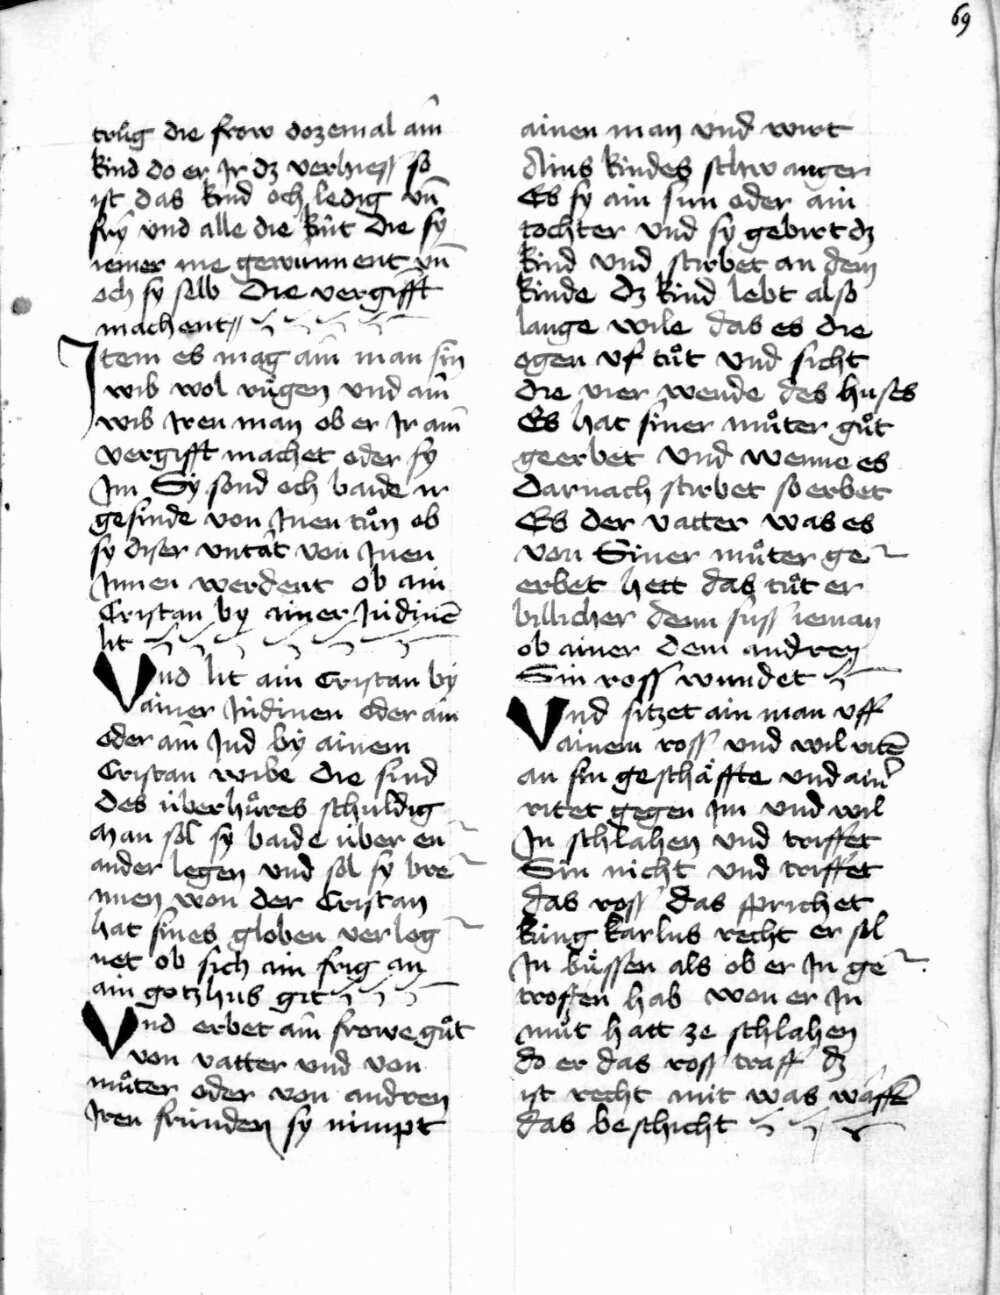 69
trůg die frow dozemal ain̄
kind do er Ir dz verhiess so
ist das kind och ledig vn̄
fry vnd alle die kint die sy
iemer me gewinnent vn̄
och sy selb Die vergifft
machent
Item es mag ain̄ man sin
wib wol rügen vnd ain̄
wib Iren man ob er Ir ain̄
vergifft machet oder sy
Im Sy sond och baide ir
gesinde von Inen tůn ob
sy diser vntat von Inen
Innen werdent ob ain
Cristan by ainer Iudinē
lit
Vnd lit ain Cristan by
ainer Iudinen oder ain
oder ain̄ Iud by ainem
Cristan wibe die sind
des überhůres schuldig
Man sol sy baide über en
ander legen vnd sol sy bre
nnen won der Cristan
hat sines globen verlog
net ob sich ain frig an
ain gotzhus git
Vnd erbet ain̄ frowe gůt
von vatter vnd von
můter oder von andren
Iren fründen sy nimpt
ainen man vnd wirt
Ains kindes schwanger
Es sy ain sun oder ain
tochter vnd sy gebirt dz
kind vnd stirbet an dem
kinde dz kind lebt also
lange wile das es die
ogen vf tůt vnd sicht
die vier wende des huses
Es hat siner můter gůt
geerbet vnd wenne es
darnach stirbet so erbet
Es der vatter was es
von Siner můter ge
erbet hett das tůt er
billicher denn suss ieman
ob ainer dem andren
Sin ross wundet
Vnd sitzet ain man vff
ainem ross vnd wil ritē
an sin geschäffte vnd ain̄
ritet gegen Im vnd wil
In schlahen vnd triffet
Sin nicht vnd triffet
das ross das sprichet
küng karlus recht er sol
In bůssen als ob er In ge
troffen hab won er In
můt hatt ze schlahen
do er das ross traff dz
ist recht mit was waffē
das beschicht